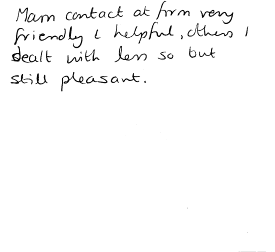 Main contact at firm very
friendly & helpful, others I
dealt with less so but
still pleasant.